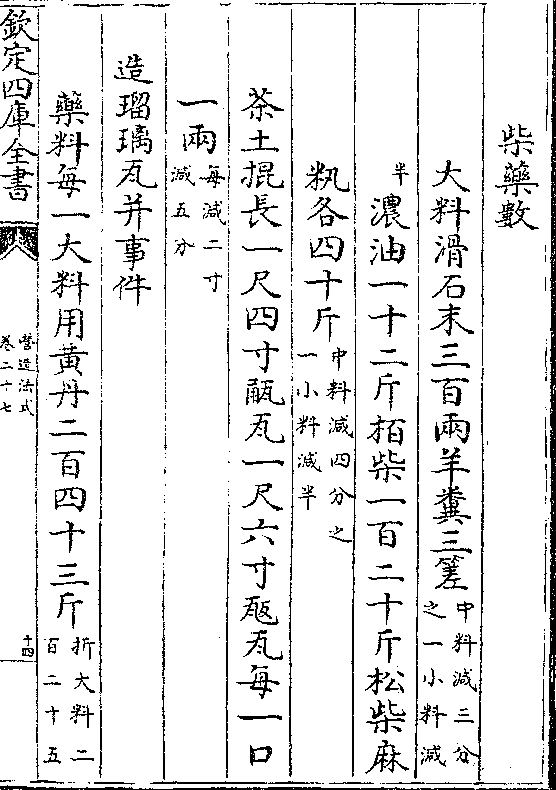 柴藥數
大料滑石末三百兩羊糞三𥰭中料減三分之一小料減
半濃油一十二斤栢柴一百二十斤松柴麻
籸各四十斤中料減四分之一小料減半
茶土掍長一尺四寸㼧瓦一尺六寸瓪瓦每一口
一兩每減二寸減五分
造瑠璃瓦并事件
藥料每一大料用黄丹二百四十三斤折大料二百二十五
欽定四庫全書
營造法式
卷二十七
十四